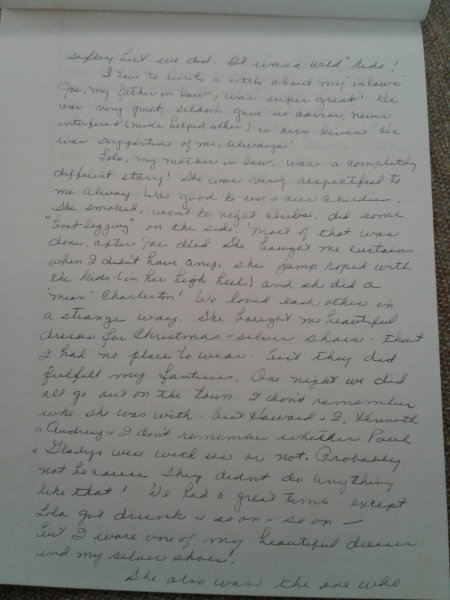 safley but we did. It was a "wild" ride!
I have to write a little about my "in laws"
Joe, my father in law, was super great! He
was very quiet, seldom gave us advice, never
interfered (never helped either) in our lives. He
was supportive of me, always!
Lola, my mother in law, was a completely
different story! She was very respectful to
me alway was good to us & our children.
She smoked, went to night clubs, did some
"boot legging" on the side. Most of that was
done, after Joe died. She bought me curtains
when I didn't have any, she jump roped with
the kids (in her high heels) and she did a
"mean" Charleston! We loved each other in
a strange way. She bought me beautiful
dresses for Christmas - silver shoes - that
I had no place to wear. But they did
fulfill my fantasies. One night we did
all go out on the town. I don't remember
who she was with - but Howard & I, Kenneth
& Audrey & I don't remember whether Paul
& Gladys were with us or not. Probably
not because they didnt do anything
like that! We had a great time - except
Lola got drunk & so on - so on -
but I wore one of my beautiful dresses
and my silver shoes!
She also was the one who